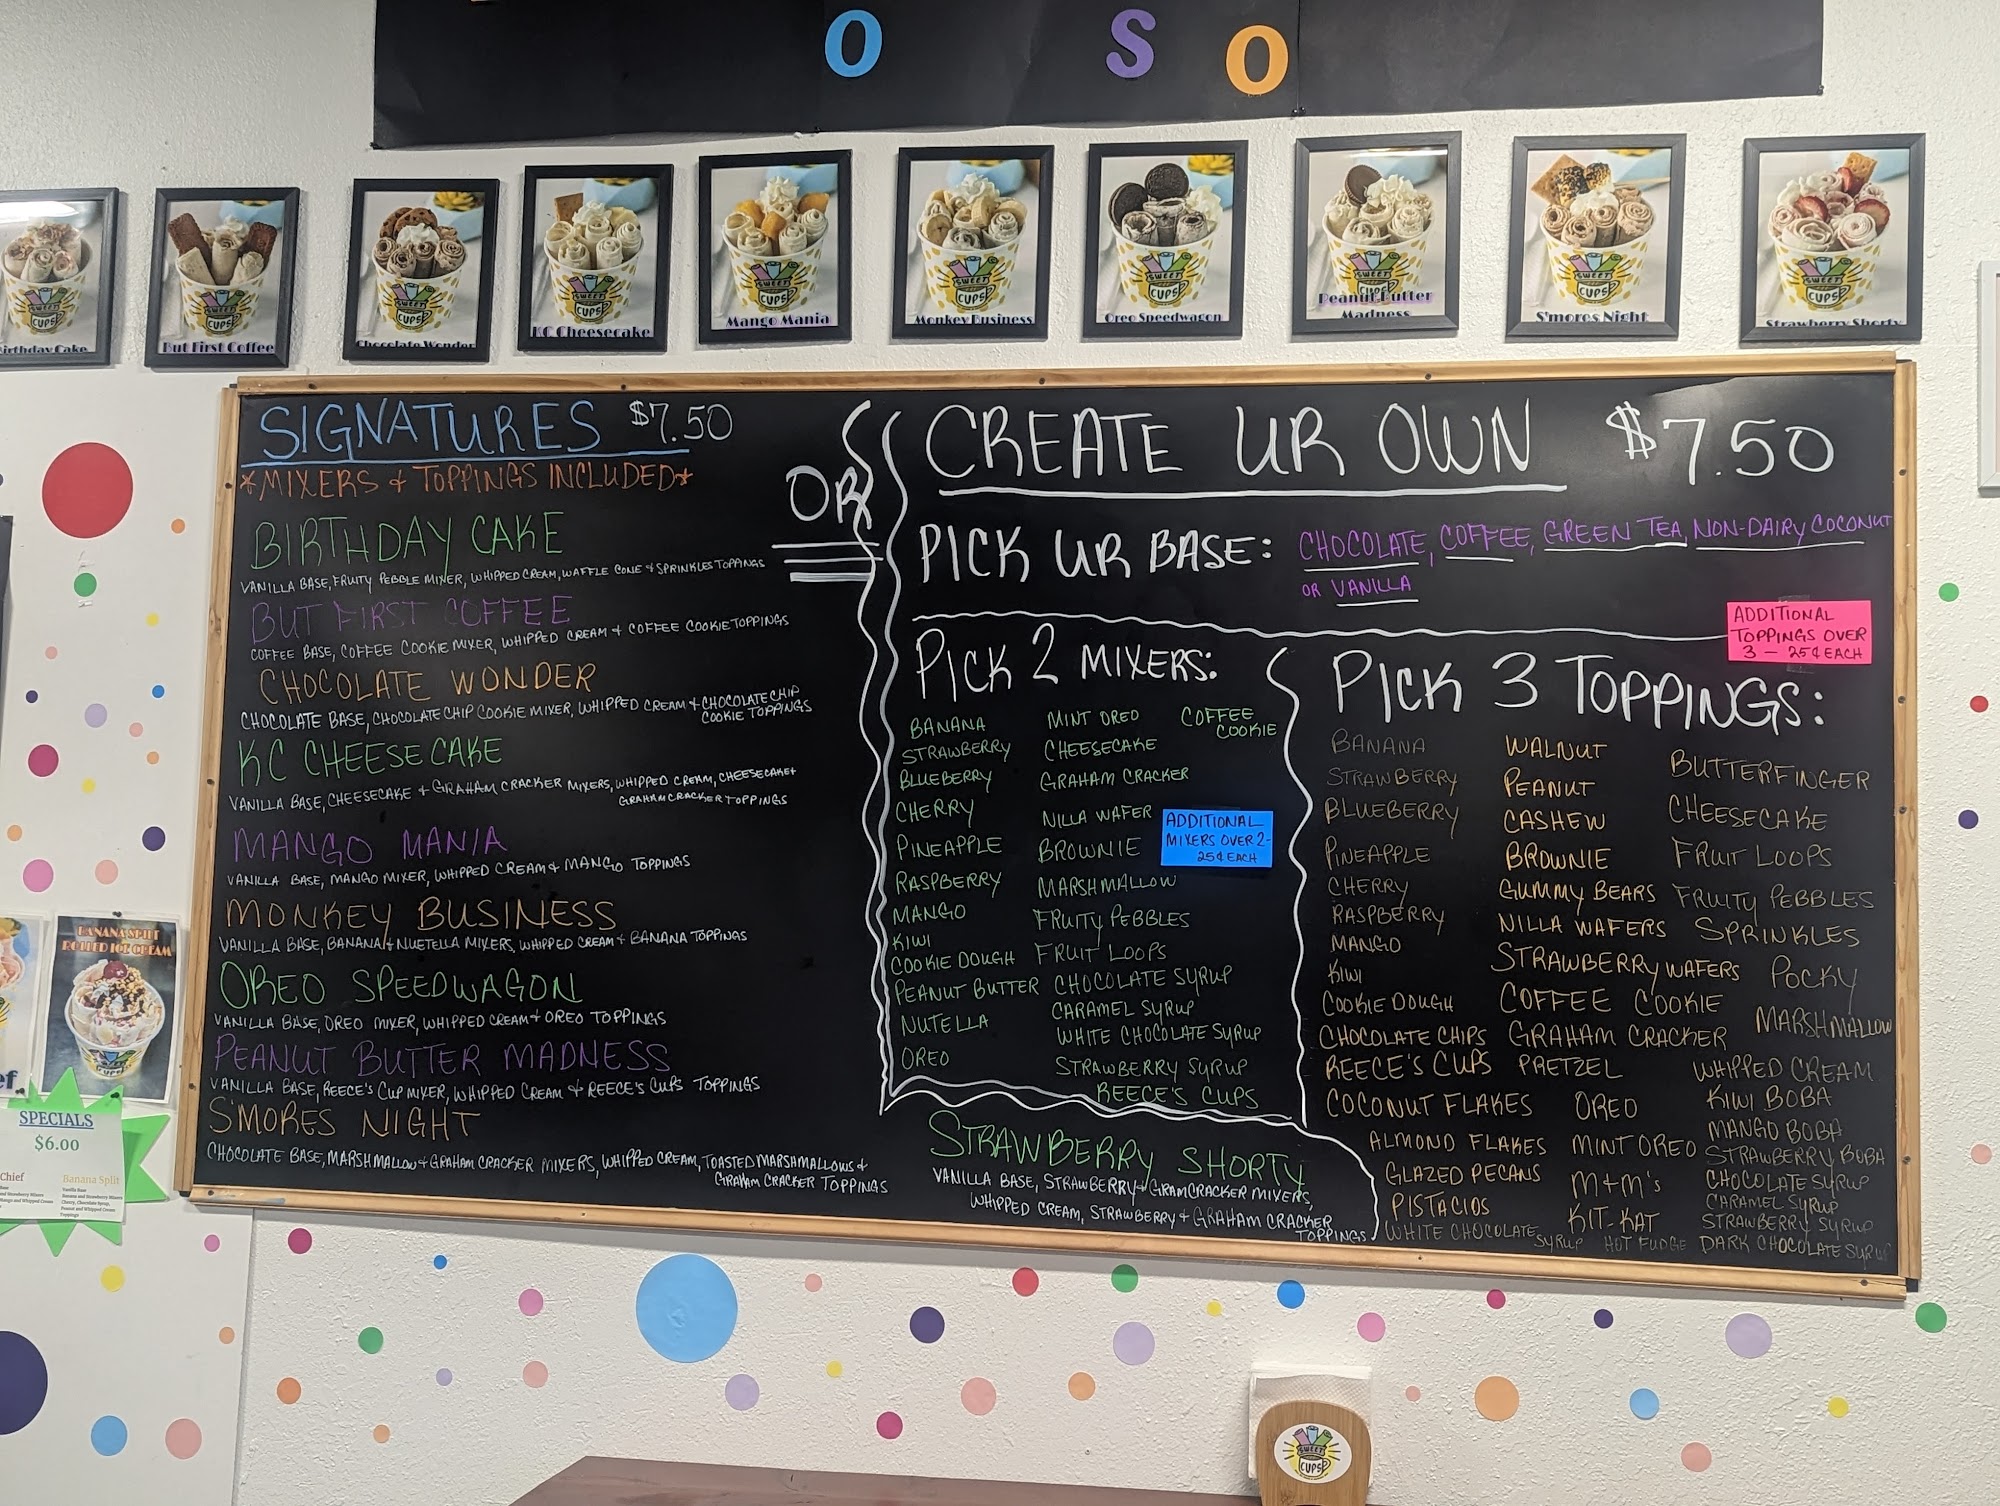 O S O
Birthday Cake
But First Coffee
Chocolate Wonder
KC Cheesecake
Mango Mania
Monkey Business
Oreo Speedwagon
Peanut Butter
Madness
S'mores Night
Strawberry Shorty
SWEET
CUPS
SIGNATURES $7.50
*MIXERS & TOPPINGS INCLUDED*
BIRTHDAY CAKE
VANILLA BASE, FRUITY PEBBLE MIXER, WHIPPED CREAM, WAFFLE CONE & SPRINKLES TOPPINGS
BUT FIRST COFFEE
COFFEE BASE, COFFEE COOKIE MIXER, WHIPPED CREAM & COFFEE COOKIE TOPPINGS
CHOCOLATE WONDER
CHOCOLATE BASE, CHOCOLATE CHIP COOKIE MIXER, WHIPPED CREAM & CHOCOLATE CHIP
COOKIE TOPPINGS
KC CHEESECAKE
VANILLA BASE, CHEESECAKE & GRAHAM CRACKER MIXERS, WHIPPED CREAM, CHEESECAKE &
GRAHAM CRACKER TOPPINGS
MANGO MANIA
VANILLA BASE, MANGO MIXER, WHIPPED CREAM & MANGO TOPPINGS
MONKEY BUSINESS
VANILLA BASE, BANANA & NUETELLA MIXERS, WHIPPED CREAM & BANANA TOPPINGS
OREO SPEEDWAGON
VANILLA BASE, OREO MIXER, WHIPPED CREAM & OREO TOPPINGS
PEANUT BUTTER MADNESS
VANILLA BASE, REECE'S CUP MIXER, WHIPPED CREAM & REECE'S CUPS TOPPINGS
S'MORES NIGHT
CHOCOLATE BASE, MARSHMALLOW & GRAHAM CRACKER MIXERS, WHIPPED CREAM, TOASTED MARSHMALLOWS &
GRAHAM CRACKER TOPPINGS
STRAWBERRY SHORTY
VANILLA BASE, STRAWBERRY & GRAMCRACKER MIXERS,
WHIPPED CREAM, STRAWBERRY & GRAHAM CRACKER
TOPPINGS
OR
CREATE UR OWN $7.50
PICK UR BASE: CHOCOLATE, COFFEE, GREEN TEA, NON-DAIRY COCONUT
OR VANILLA
PICK 2 MIXERS:
BANANA
STRAWBERRY
BLUEBERRY
CHERRY
PINEAPPLE
RASPBERRY
MANGO
KIWI
COOKIE DOUGH
PEANUT BUTTER
NUTELLA
OREO
MINT OREO
CHEESECAKE
GRAHAM CRACKER
NILLA WAFER
BROWNIE
MARSHMALLOW
FRUITY PEBBLES
FRUIT LOOPS
CHOCOLATE SYRUP
CARAMEL SYRUP
WHITE CHOCOLATE SYRUP
STRAWBERRY SYRUP
REECE'S CUPS
COFFEE
COOKIE
ADDITIONAL
MIXERS OVER 2-
25¢ EACH
ADDITIONAL
TOPPINGS OVER
3 - 25¢ EACH
PICK 3 TOPPINGS:
BANANA
STRAWBERRY
BLUEBERRY
PINEAPPLE
CHERRY
RASPBERRY
MANGO
KIWI
COOKIE DOUGH
CHOCOLATE CHIPS
REECE'S CUPS
COCONUT FLAKES
ALMOND FLAKES
GLAZED PECANS
PISTACIOS
WHITE CHOCOLATE
SYRUP
WALNUT
PEANUT
CASHEW
BROWNIE
GUMMY BEARS
NILLA WAFERS
STRAWBERRY WAFERS
COFFEE COOKIE
GRAHAM CRACKER
PRETZEL
OREO
MINT OREO
M&M'S
KIT-KAT
HOT FUDGE
BUTTERFINGER
CHEESECAKE
FRUIT LOOPS
FRUITY PEBBLES
SPRINKLES
POCKY
MARSHMALLOW
WHIPPED CREAM
KIWI BOBA
MANGO BOBA
STRAWBERRY BOBA
CHOCOLATE SYRUP
CARAMEL SYRUP
STRAWBERRY SYRUP
DARK CHOCOLATE SYRUP
BANANA SPLIT
ROLLED ICE CREAM
SPECIALS
$6.00
Chief
Banana Split
Vanilla Base
Banana and Strawberry Mixers
Cherry, Chocolate Syrup,
Peanut and Whipped Cream
Toppings
SWEET
CUPS